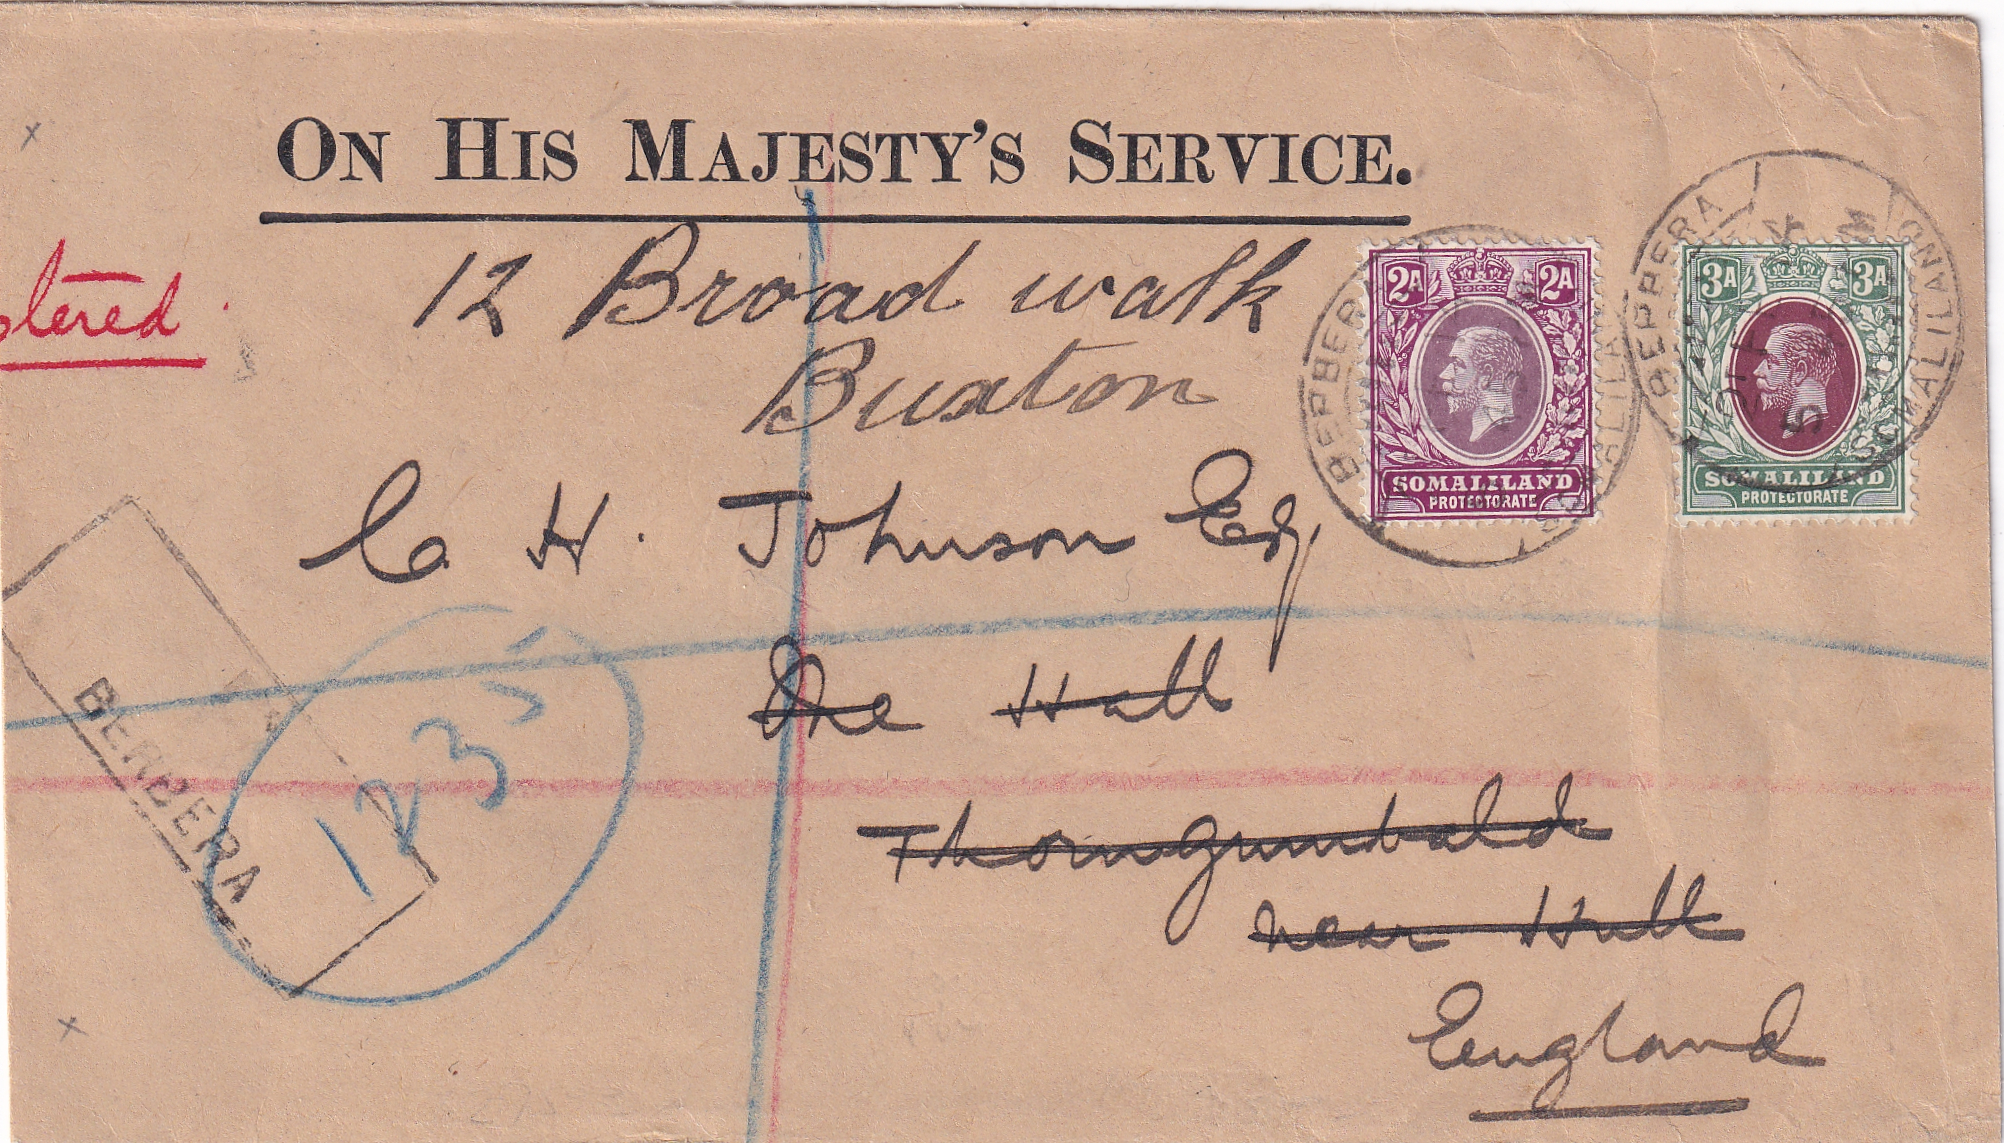 ON HIS MAJESTY'S SERVICE.
stered
12 Broad walk
Buxton
C. H. Johnson Esq
The Hall
Thorngumbald
near Hull
England
2A 2A
SOMALILAND
PROTECTORATE
3A 3A
SOMALILAND
PROTECTORATE
BERBERA
BERBERA
SOMALILAND
BERBERA
123